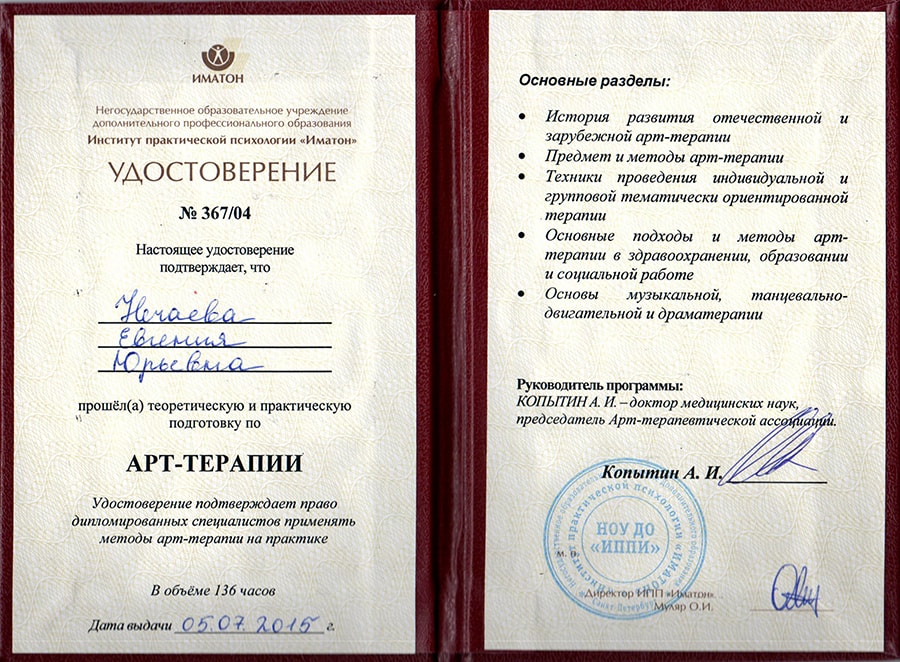 ИМАТОН
Негосударственное образовательное учреждение
дополнительного профессионального образования
Институт практической психологии «Иматон»
УДОСТОВЕРЕНИЕ
№ 367/04
Настоящее удостоверение
подтверждает, что
Нечаева
Евгения
Юрьевна
прошёл(а) теоретическую и практическую
подготовку по
АРТ-ТЕРАПИИ
Удостоверение подтверждает право
дипломированных специалистов применять
методы арт-терапии на практике
В объёме 136 часов
Дата выдачи 05.07.2015 г.
Основные разделы:
• История развития отечественной и
зарубежной арт-терапии
• Предмет и методы арт-терапии
• Техники проведения индивидуальной и
групповой тематически ориентированной
терапии
• Основные подходы и методы арт-
терапии в здравоохранении, образовании
и социальной работе
• Основы музыкальной, танцевально-
двигательной и драматерапии
Руководитель программы:
КОПЫТИН А. И. – доктор медицинских наук,
председатель Арт-терапевтической ассоциации.
Копытин А. И.
практической психологии «ИМАТОН»
НОУ ДО
«ИППИ»
м. п.
Директор ИПП «Иматон»
Муляр О.И.